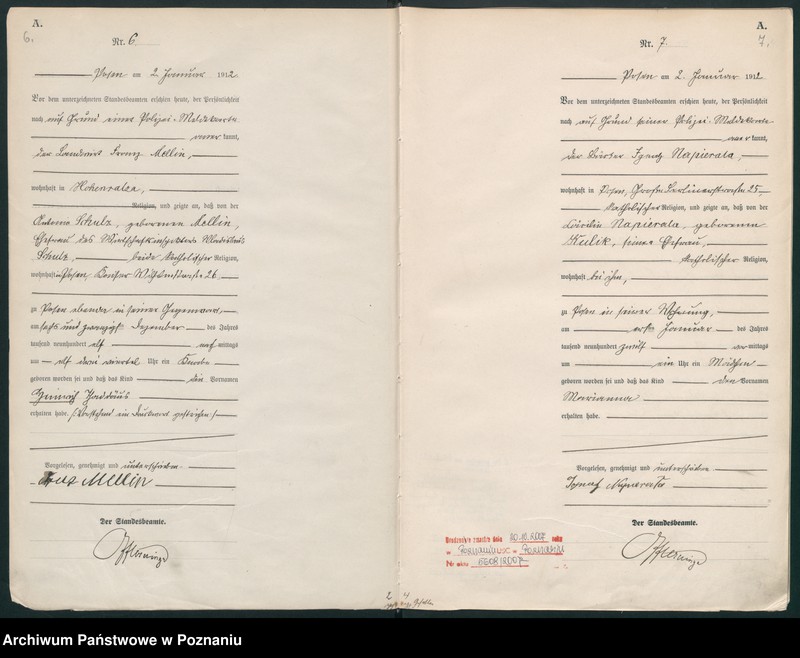 A.
6.
Nr. 6
Posen am 2. Januar 1912
Vor dem unterzeichneten Standesbeamten erschien heute, der Persönlichkeit
nach auf Grund einer Polizei-Meldekarte
kannt,
der Landwirt Franz Mellin,
wohnhaft in Hohensalza,
Religion, und zeigte an, daß von der
Antonie Schulz, geborenen Mellin,
Ehefrau des Wirtschaftsinspektors
Schulz, beide katholischer Religion,
wohnhaft in Posen, 26
zu Posen ebenda in seiner Gegenwart,
am sechs und zwanzigsten Dezember des Jahres
tausend neunhundert elf nachmittags
um elf drei viertel Uhr ein Knabe
geboren worden sei und daß das Kind den Vornamen
Heinrich Thaddäus
erhalten habe. Vorstehend ein Druckwort gestrichen
Vorgelesen, genehmigt und unterschrieben
Franz Mellin
Der Standesbeamte.
A.
7.
Nr. 7
Posen am 2. Januar 1912
Vor dem unterzeichneten Standesbeamten erschien heute, der Persönlichkeit
nach auf Grund seiner Polizei-Meldekarte
kannt,
der Ignatz Napierala,
wohnhaft in Posen, Große Berlinerstraße 25
katholischer Religion, und zeigte an, daß von der
Napierala, geborenen
Kulik, seiner Ehefrau,
katholischer Religion,
wohnhaft bei ihm,
zu Posen in seiner Wohnung,
am ersten Januar des Jahres
tausend neunhundert zwölf vormittags
um ein Uhr ein Mädchen
geboren worden sei und daß das Kind den Vornamen
Marianna
erhalten habe.
Vorgelesen, genehmigt und unterschrieben
Der Standesbeamte.
10.10.2007 roku
w USC
Nr aktu
Archiwum Państwowe w Poznaniu